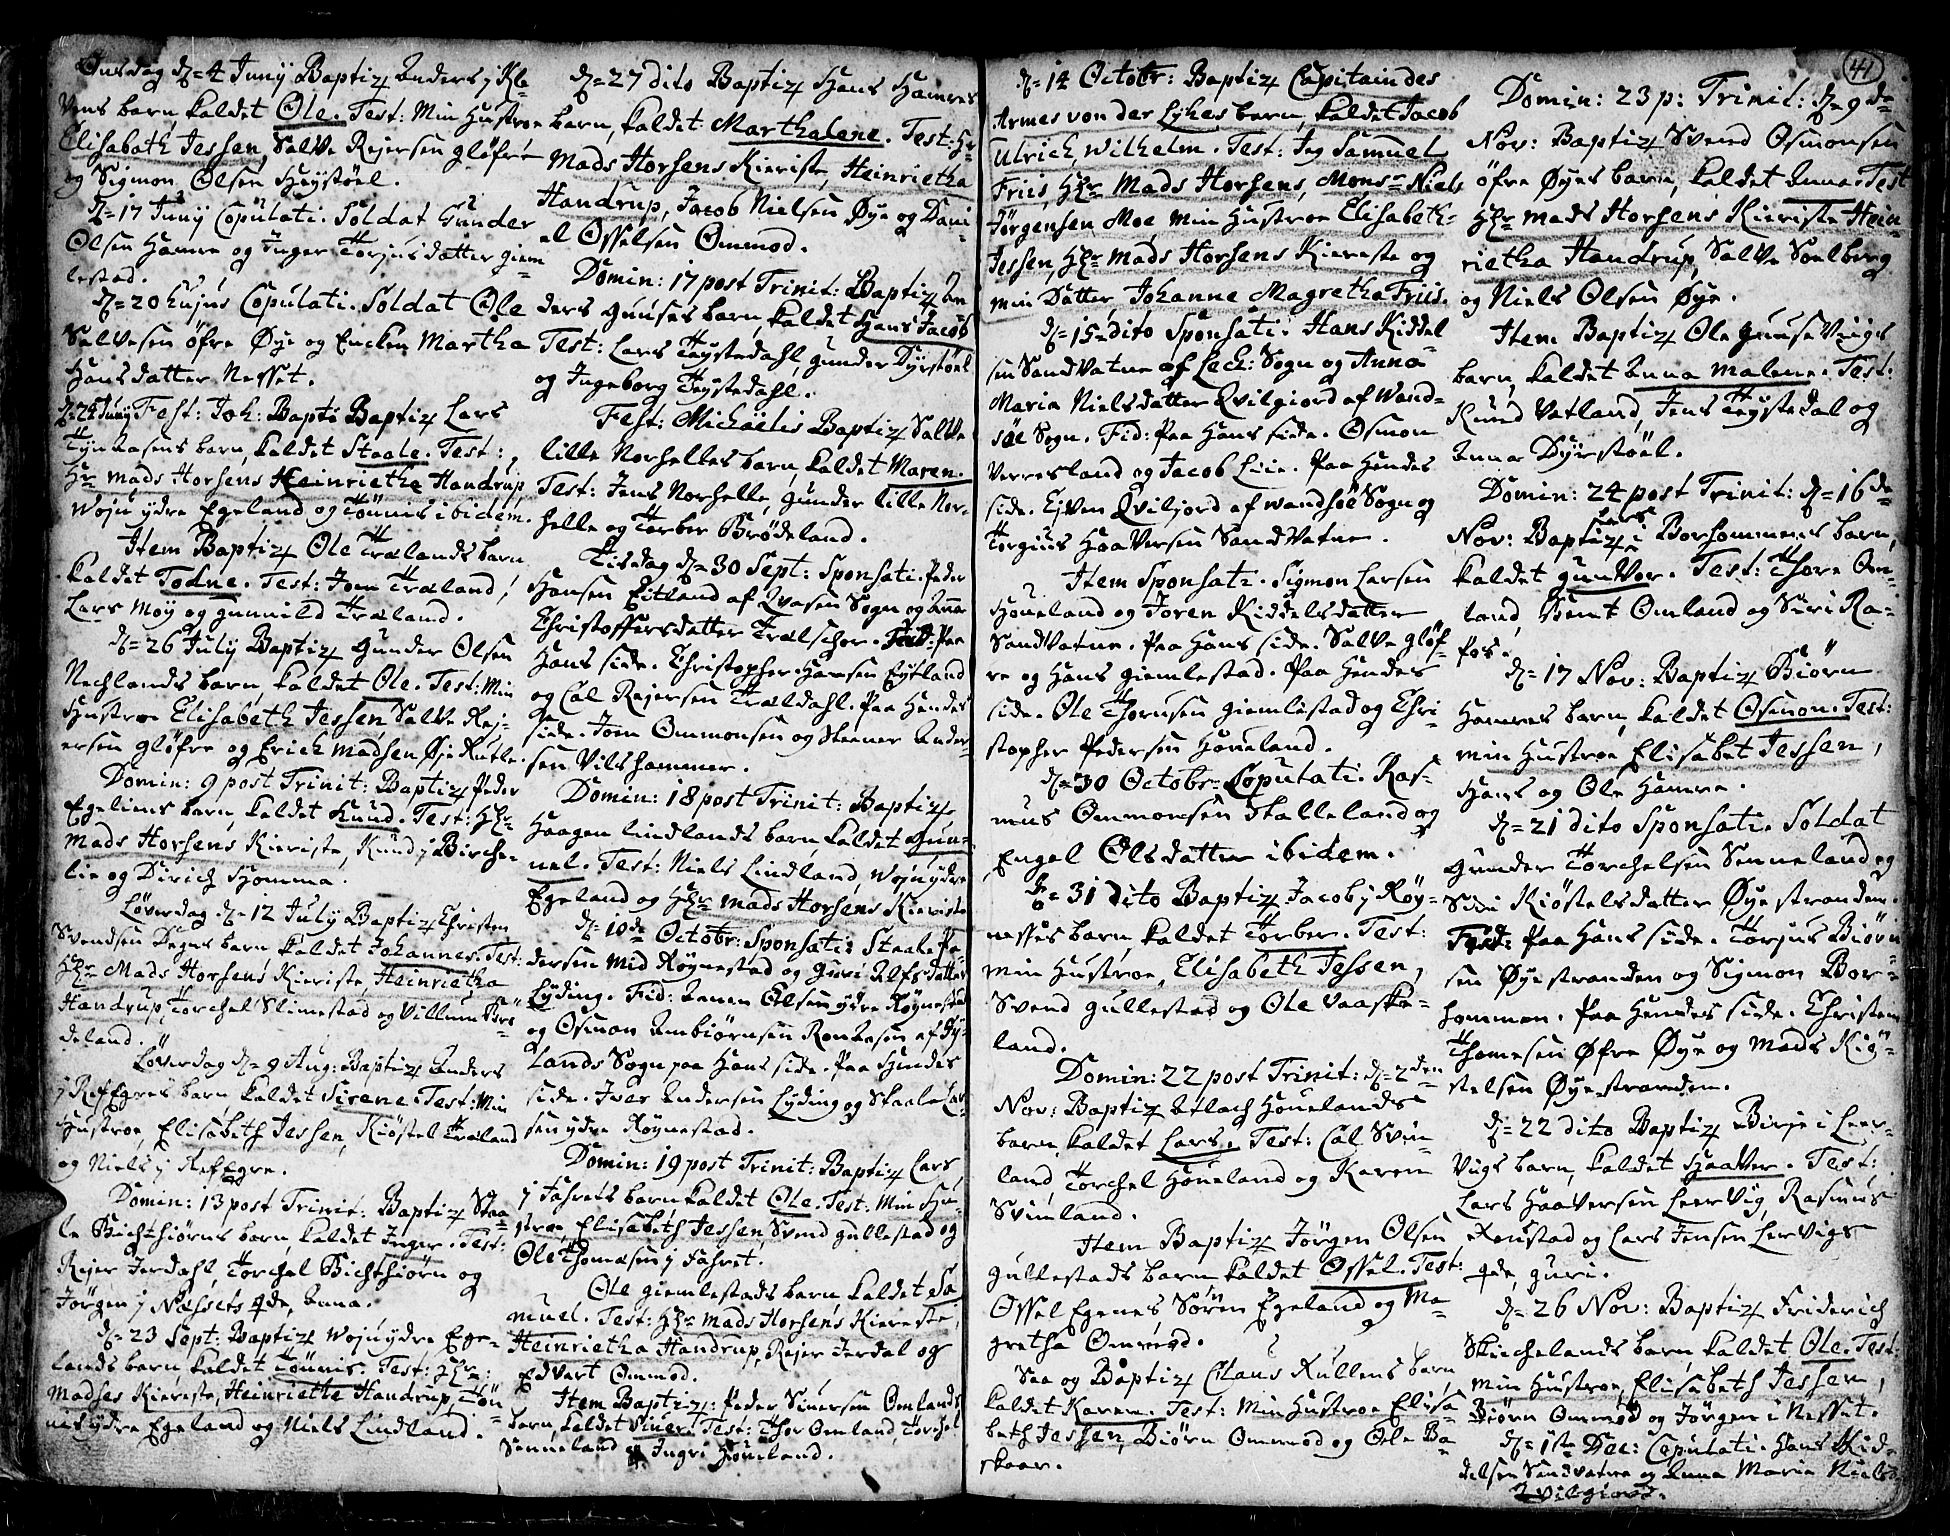 Onsdag d= 4 Junÿ Baptiz Anders j Kle
Vens barn, kaldet Ole. Test: Min Hustroe
Elisabeth Jessen, Salve Reiersen Gløfre
og Sigmon Olsen Høystöel.
d= 17 Junÿ Copulati. Soldat Gunder
Olsen Hamre og Inger Torjusdatter Giem
lestad.
d= 20 hujus Copulati. Soldat Ole
Salvesen öfre Øye og Encken Martha
Hansdatter Nesset.
d= 24 Junÿ Fest: Joh: Bapts Baptiz Lars
barn, kaldet Staale. Test:
Hr Mads Horsens Heinrietha Handrup,
Woju ydre Egeland og Tönnis ibidem.
Item Baptiz Ole Trælands barn
kaldet Todne. Test: Joen Træland,
Lars Moÿ og Gunnild Træland.
d= 26 Julÿ Baptiz Gunder Olsen
Nechlands barn, kaldet Ole. Test: Min
Hustroe Elisabeth Jessen, Salve Rej-
ersen Gløfre og Erich Madsen
Domin: 9 post Trinit: Baptiz Peder
Egeliens barn, kaldet Knud. Test: Hr
Mads Horsens Kieriste, Knud j Birche-
lie og Dirich Homma.
Löverdag d= 12 Julÿ Baptiz Christen
Svendsen Degns barn kaldet Johannes. Test:
Hr Mads Horsens Kieriste Heinrietha
Handrup, Torchel Slimestad og Villum Brö
deland.
Löverdag d= 9 Aug: Baptiz Anders
j Refsegres barn kaldet Sirene. Test: Min
Hustroe, Elisabeth Jessen, Kiöstel Træland
og Niels j Refsegre.
Domin: 13 post Trinit: Baptiz Staa-
le Bichthiörns barn, kaldet Inger. Test:
Rejer Jerdahl, Torchel Bichthiörn og
Jörgen j Næssets qde, Anna.
d= 23 Sept: Baptiz Woju ydre Ege-
lands barn, kaldet Tönnis. Test: Hr
Madses Kiereste, Heinriette Handrup, Tön-
nis ydre Egeland og Niels Lindland.
d= 27 dito Baptiz Hans Hamres
barn, kaldet Marthalene. Test: Hr
Mads Horsens Kieriste, Heinrietha
Handrup, Jacob Nielsen Øye og Dani-
el Osselsen Ommod.
Domin: 17 post Trinit: Baptiz An-
ders Guuses barn, kaldet Hans Jacob
Test: Lars Tøystedahl, Gunder Dyrstöel
og Ingeborg Tøystedahl.
Fest: Michaëlis Baptiz Salve
lille Norhelles barn, kaldet Maren.
Test: Jens Norhelle, Gunder lille Nor-
helle og Torber Brödeland.
Tisdag d= 30 Sept: Sponsati. Peder
Hansen Eitland af Qvasen Sogn og Anna
Christoffersdatter Trælschor. Fid: Paa
Hans side. Christopher Hansen Eÿtland
og Cal Reiersen Trældahl. Paa Hendes
side. Joen Ommonsen og Steener Ander-
sen Vilshammer.
Domin: 18 post Trinit: Baptiz
Haagen Lindlands barn, kaldet Gun-
nel. Test: Niels Lindland, Woju ydre
Egeland og Hr Mads Horsens Kieriste
d= 10de Octobr: Sponsati: Staale Pe-
dersen Mid Röynestad og Guri Alfsdatter
Lyding. Fid: Aanen Olsen ydre Röynestad
og Osmon Ambiörnsen Ronkesen af Fy-
lands Sogn paa Hans side. Paa Hendes
side. Iver Andersen Lyding og Staale Lar-
sen ydre Röynestad.
Domin: 19 post Trinit: Baptiz Lars
j Jahrets barn kaldet Ole. Test: Min Hu-
stroe, Elisabeth Jessen, Svend Gullestad og
Ole Thomasen j Jahret.
Ole Giemlestads barn kaldet Sa
muel. Test: Hr Mads Horsens Kiereste,
Heinrietha Handrup, Rejer Jerdal og
Edvart Ommod.
Item Baptiz: Peder Siversen Omlands
barn, kaldet Siver. Test: Thor Omland, Torchel
Senneland og Ingri Höuland.
d= 14 Octobr: Baptiz Capitain des
Armes von der Lÿhes barn, kaldet Jacob
Ulrich Wilhelm. Test: Jeg Samuel
Friis, Hr Mads Horsens, Monsr Niels
Jörgensen Moe, min Hustroe Elisabeth
Jessen, Hr Mads Horsens Kiereste og
min Datter Johanne Magretha Friis.
d= 15 dito Sponsati. Hans Kiddel
sen Sandvatne af Leck: Sogn og Anna
Maria Nielsdatter Qvilgiord af Wand-
söe Sogn. Fid: Paa Hans side. Osmon
Verresland og Jacob Lie. Paa Hendes
side. Ejven Qviljord af Wandsöe Sogn og
Torgius Haaversen Sandvatne.
Item Sponsati. Sigmon Larsen
Höueland og Joren Kiddelsdatter
Sandvatne. Paa Hans side. Salve Gløf-
re og Hans Giemlestad. Paa Hendes
side. Ole Thorsen Giemlestad og Chri-
stopher Pedersen Höueland.
d= 30 Octobr: Copulati. Ras-
mus Ommonsen Stalleland og
Engel Olsdatter ibidem.
d= 31 dito Baptiz Jacob j Röy-
nesses barn, kaldet Torber. Test:
Min Hustroe, Elisabeth Jessen,
Svend Gullestad og Ole Vaaske-
land.
Domin: 22 post Trinit: d= 2den
Nov: Baptiz Atlach Höuelands
barn kaldet Lars. Test: Cal Svin-
land, Torchel Höueland og Karen
Svinland.
Item Baptiz Jörgen Olsen
Gullestads barn kaldet Ossel. Test:
Ossel Egenes, Sören Egeland og Ma-
gretha Ommod.
Saa og Baptiz Claus Rullens barn
kaldet Karen. Test: Min Hustroe Elisa-
beth Jessen, Biörn Ommod og Ole Ba-
skaar.
41
Domin: 23 p: Trinit: d= 9de
Nov: Baptiz Svend Osmonsen
öfre Øyes barn, kaldet Anna. Test
Hr Mads Horsens Kieriste Hein-
rietha Handrup, Salve Soelberg
og Niels Olsen Øye.
Item Baptiz Ole Guuse Vüigs
barn, kaldet Anna Malene. Test:
Knud Vatland, Jens Tøystedal og
Anna Dyrstöel.
Domin: 24 post Trinit: d= 16de
Nov: Baptiz Lars i Borhommens barn,
kaldet Gunvor. Test: Thore Om-
land, Bent Omland og Siri Ra-
fos.
d= 17 Nov: Baptiz Biörn
Hamres barn, kaldet Osmon. Test:
min Hustroe Elisabet Jessen,
Hans og Ole Hamre.
d= 21 dito Sponsati. Soldat
Gunder Torchelsen Senneland og
Siri Kiöstelsdatter Øyestranden.
Fid: Paa Hans side. Torjus Biörn-
sen Øyestranden og Sigmon Bor-
hommen. Paa Hendes side. Christen
Thomesen Øfre Øye og Mads Kiö-
stelsen Øyestranden.
d= 22 dito Baptiz Birje i Leer-
vigs barn, kaldet Haaver. Test:
Lars Haaversen Leervig, Rasmus
Röustad og Lars Jensen Lervigs
qde, Guri.
d= 26 Nov: Baptiz Friderich
Stichelands barn, kaldet Ole. Test:
min Hustroe, Elisabeth Jessen,
Biörn Ommod og Jörgen i Nesset.
d= 1ste Dec: Copulati. Hans Kid-
delsen Sandvatne og Anna Maria Niels
Qvilgiord.